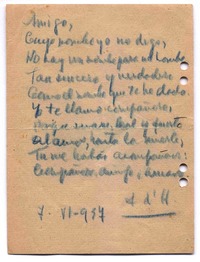 Amigo,
Cuyo nombre yo no digo,
No hay un nombre para mi nombre
Tan sincero y verdadero
Como el nombre que te he dado.
Y te llamo compañero,
leal y
al amor, hasta la muerte,
Tu me habías acompañado:
Compañero, amigo, amado
A. d'H
7 - VI - 957